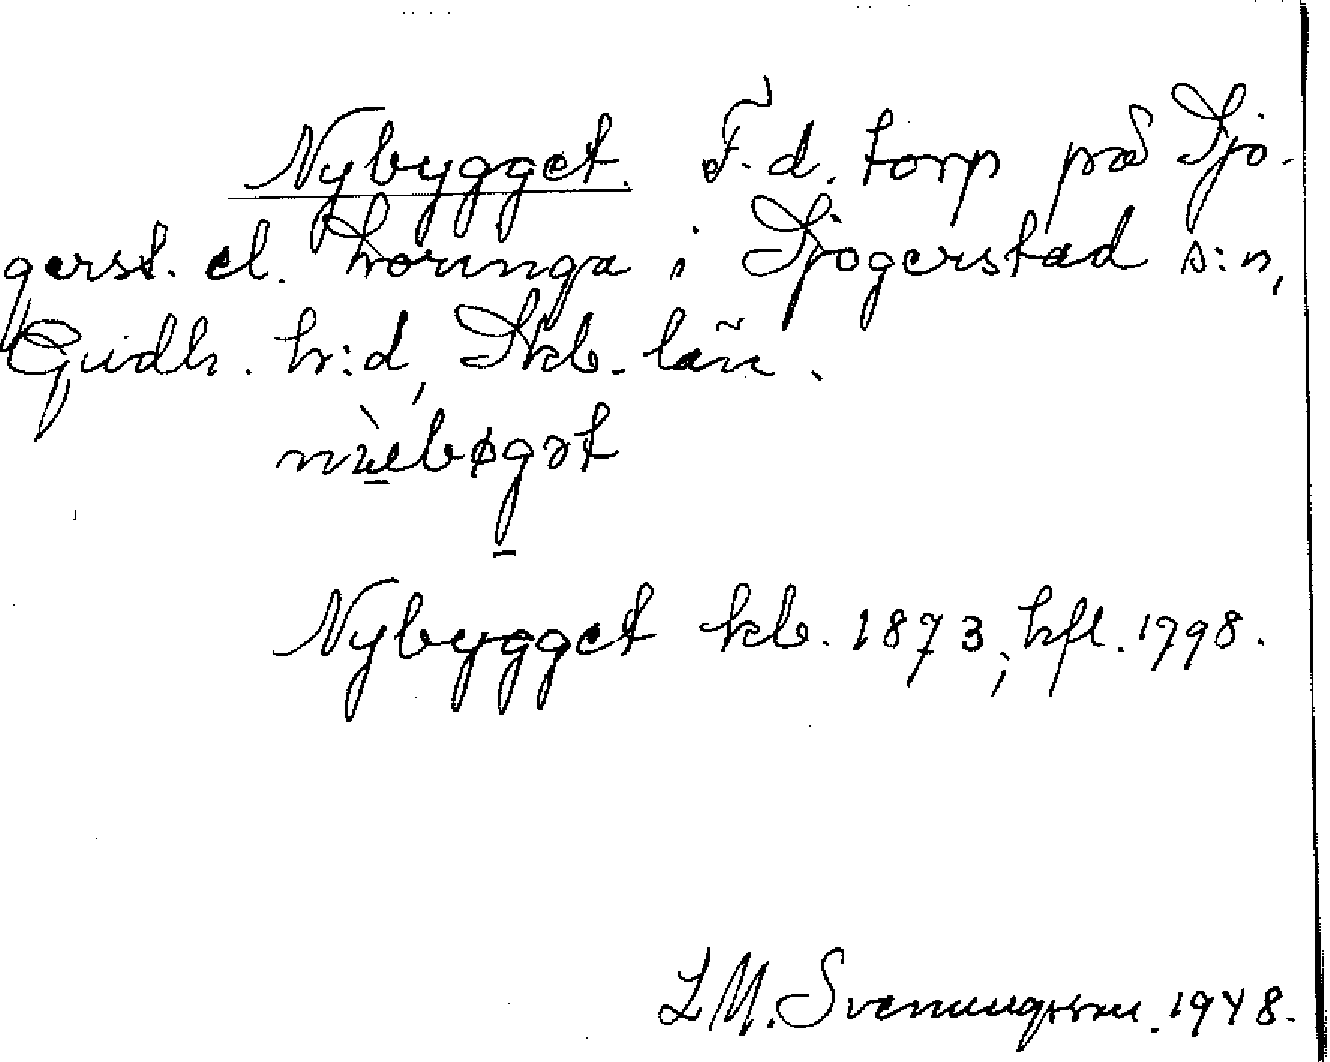 Nybygget. F.d. torp på Sjo-
gerst. el. Loringa i Sjogerstad s:n,
Gudh. h:d, Skb. län.
Nybygget kb. 1873; hfl. 1798.
L M. Svenungsson. 1948.